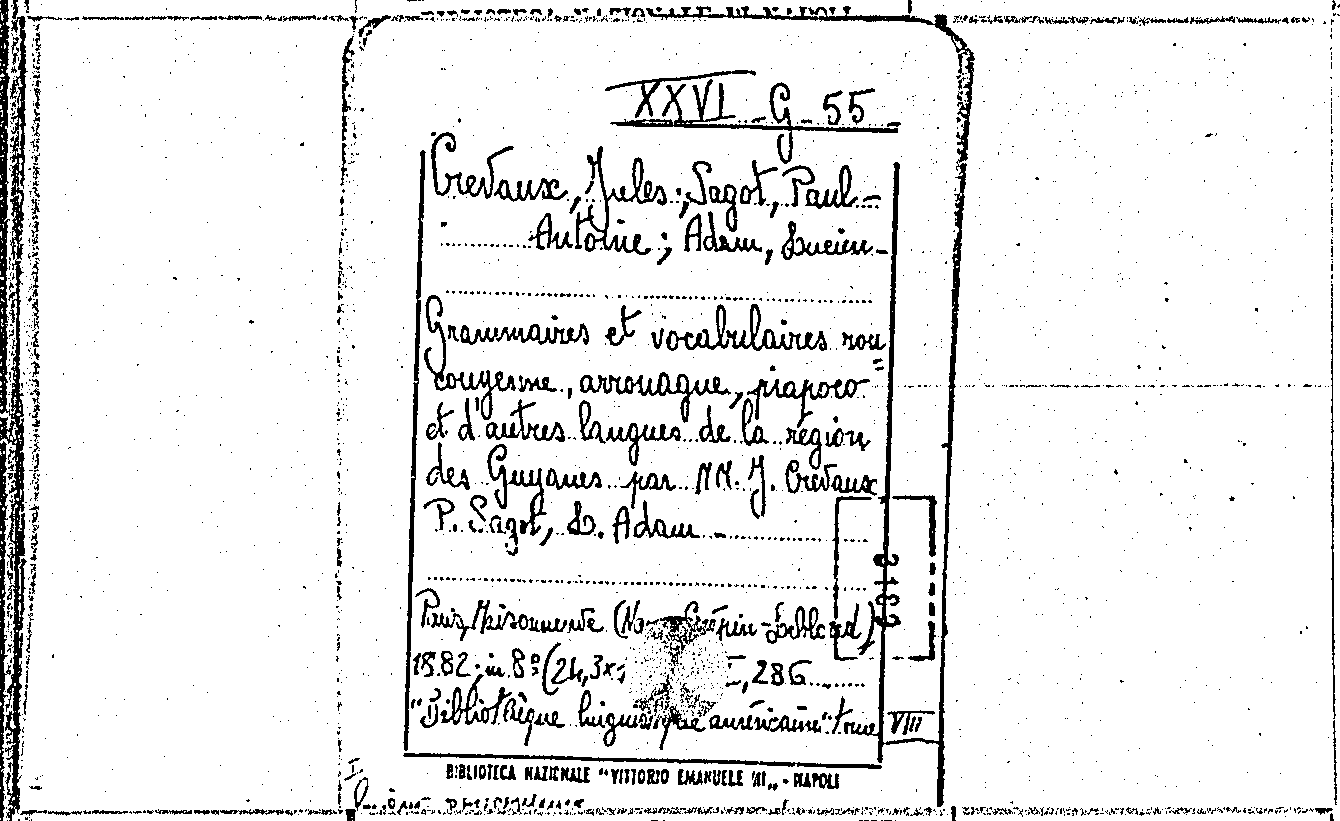 BIBLIOTECA NAZIONALE DI NAPOLI
XXVI - G - 55
Crevaux, Jules; Sagot, Paul-
Antoine; Adam, Lucien-
Grammaires et vocabulaires rou"
couyenne, arrouague, piapoco
et d'autres langues de la région
des Guyanes par MM. J. Crevaux
P. Sagot, L. Adam -
Paris, Maisonneuve
1882; in 8° (24,3x 286
"Bibliothèque linguistique américaine" tome VIII
BIBLIOTECA NAZIONALE "VITTORIO EMANUELE III„ - NAPOLI